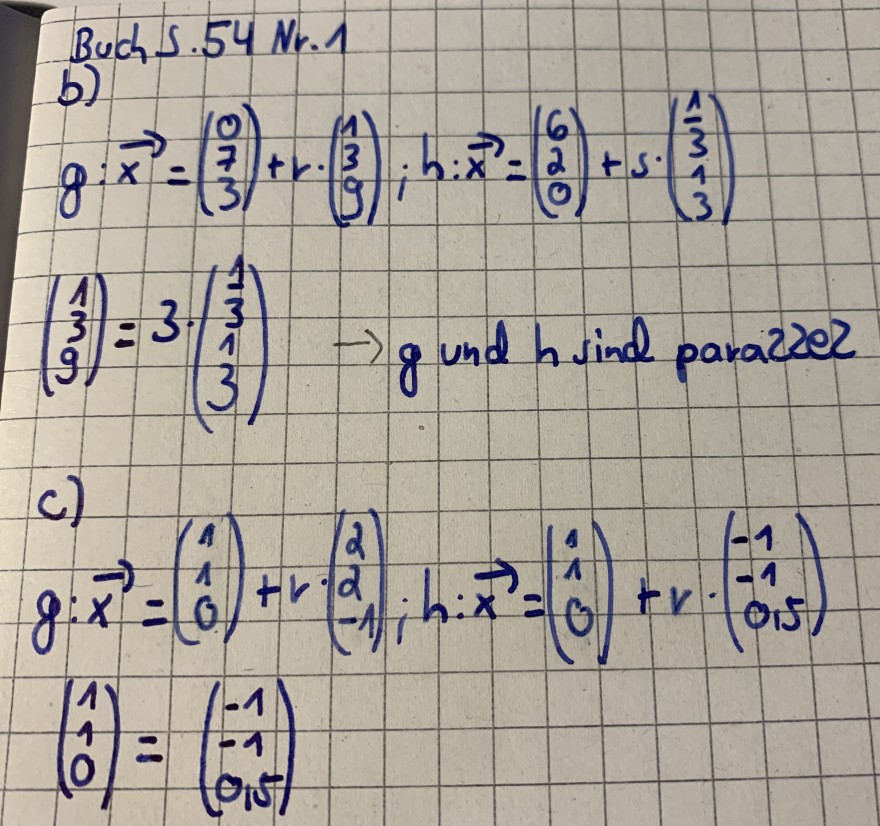 Buch S. 54 Nr. 1
b)
g: x⃗ = (0 7 3) + r · (1 3 9) ; h: x⃗ = (6 2 0) + s · (1/3 1 3)
(1 3 9) = 3 · (1/3 1 3) → g und h sind parallel
c)
g: x⃗ = (1 1 0) + r · (2 2 -1) ; h: x⃗ = (1 1 0) + r · (-1 -1 0,5)
(1 1 0) = (-1 -1 0,5)